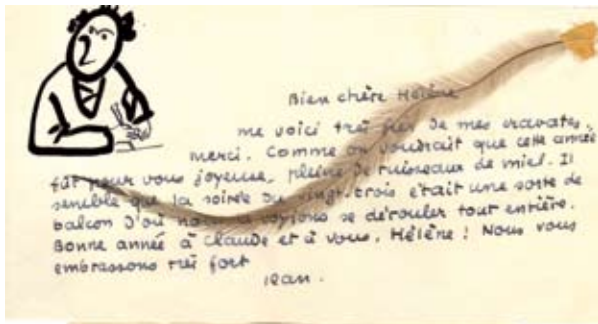 Bien chère Hélène
me voici très fier de mes cravates.
merci. Comme on voudrait que cette année
fût pour vous joyeuse, pleine de ruisseaux de miel. Il
semble que la soirée du vingt-trois était une sorte de
balcon d'où nous la voyions se dérouler tout entière.
Bonne année à Claude et à vous, Hélène ! Nous vous
embrassons très fort
Jean.